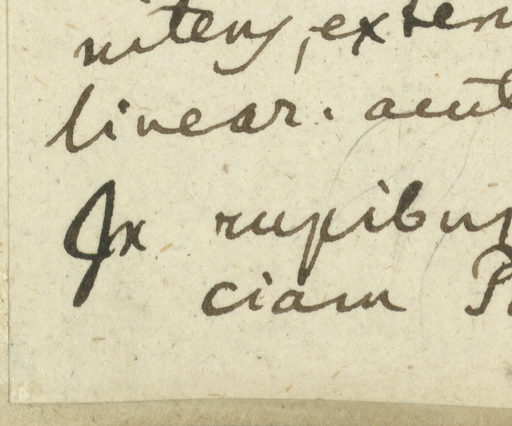 nitens, exter
linear. acut
Jx rupibus
ciam P